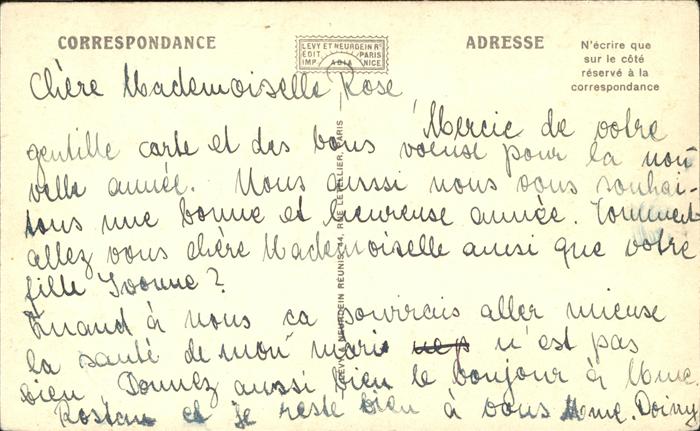 CORRESPONDANCE
LEVY ET NEURDEIN Rs
EDIT. PARIS
IMP. ADIA NICE
ADRESSE
N'écrire que
sur le côté
réservé à la
correspondance
Chère Mademoiselle Rose
Mercie de votre
gentille carte et des bons voeux pour la nou
velle année. Nous aussi nous vous souhai-
tons une bonne et heureuse année. Comment
allez vous chère Mademoiselle ausi que votre
fille Yvonne?
Quand à nous ca
aller mieuse
la santé de mon mari n'est pas
bien Donnez aussi bien le bonjour à Mme.
et je reste bien à vous Mme.
LEVY & NEURDEIN REUNIS, 44, RUE LETELLIER, PARIS